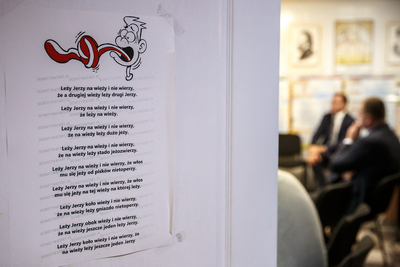 Leży Jerzy na wieży i nie wierzy,
że a drugiej wieży leży drugi Jerzy.
Leży Jerzy na wieży i nie wierzy,
że leży na wieży.
Leży Jerzy na wieży i nie wierzy,
że na wieży leży dużo jeży.
Leży Jerzy na wieży i nie wierzy,
że na wieży leży stado jeżozwierzy.
Leży Jerzy na wieży i nie wierzy, że włos
mu się jeży od plików nietoperzy.
Leży Jerzy na wieży i nie wierzy, że włos
mu się jeży na tej wieży na której leży.
Leży Jerzy koło wieży i nie wierzy,
że na wieży leży gniazdo nietoperzy.
Leży Jerzy obek wieży i nie wierzy,
że na wieży jeszcze jeden leży Jerzy.
Leży Jerzy koło wieży i nie wierzy, że
na wieży leży jeszcze jeden Jerzy